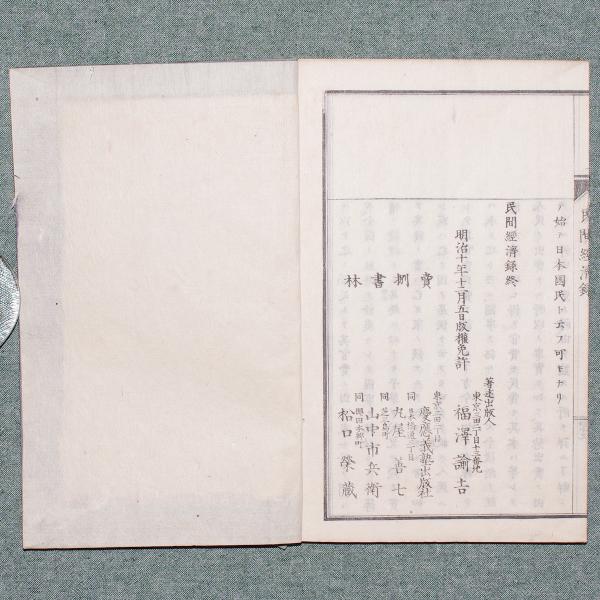 テ始テ日本國民ト云フ可キナリ
民間經濟錄終
明治十年十二月五日版權免許
著述出版人
東京三田二丁目十三番地
福澤諭吉
賣捌書林
東京三田二丁目
慶應義塾出版社
同
日本橋通三丁目
丸屋善七
同
芝三島町
山中市兵衛
同
松口榮藏
民間經濟錄